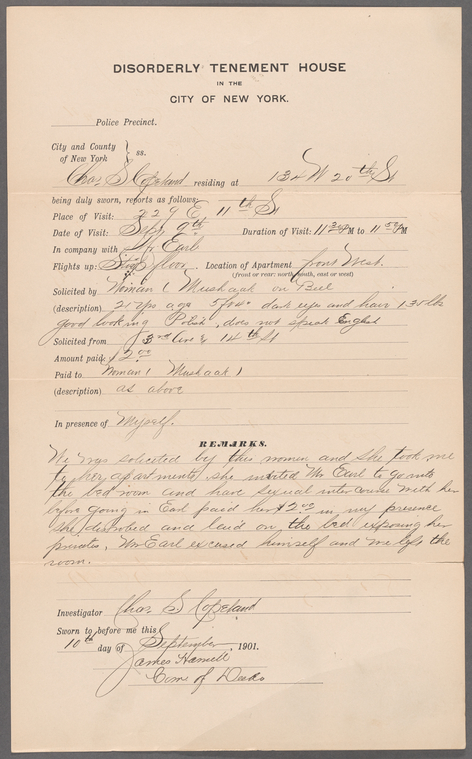 DISORDERLY TENEMENT HOUSE
IN THE
CITY OF NEW YORK.
Police Precinct.
City and County
of New York } ss.
Chas S Copeland residing at 134 W 20th St
being duly sworn, reports as follows:
Place of Visit: 229 E 11th St
Date of Visit: Sep 9th Duration of Visit: 11 PM to 11 50 PM
In company with Mr Earl
Flights up: floor Location of Apartment front West.
(front or rear: north, south, east or west)
Solicited by Woman ( Mushaak on Bell
(description) 21 yrs age 5ft dark eyes and hair 130 lbs
good looking Polish, does not speak English
Solicited from 3rd Ave & 14th St
Amount paid: $2.00
Paid to Woman ( Mushaak )
(description) as above
In presence of Myself.
REMARKS.
We was solicited by this woman and she took me
to her apartments, she invited Mr Earl to go into
the bed room and have sexual intercourse with her
before going in Earl paid her $2.00 in my presence
She disrobed and laid on the bed exposing her
privates, Mr Earl excused himself and we left the
room.
Investigator Chas S Copeland
Sworn to before me this
10th day of September, 1901.
James Hamill
Come of Deeds